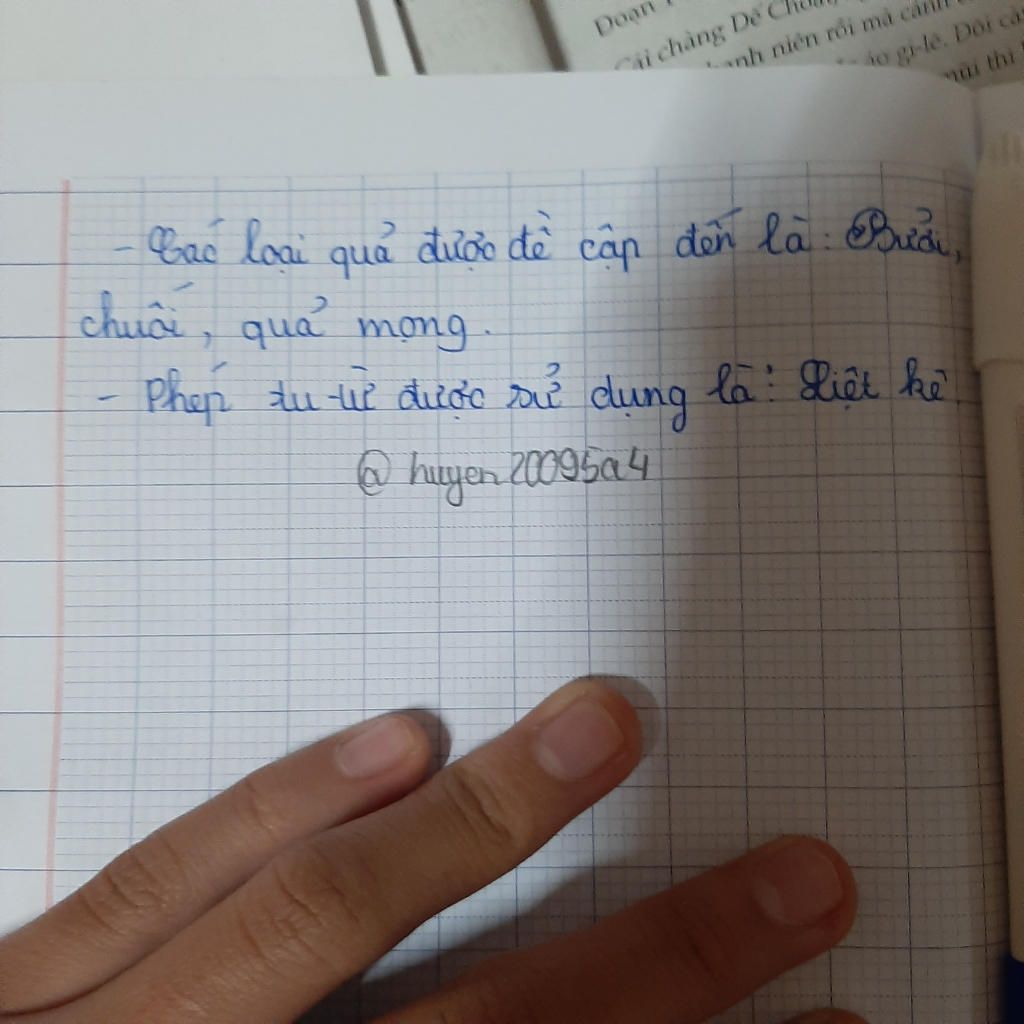 Đoạn
Cái chàng Dế Cho
anh niên rồi mà cánh
áo gi-lê. Đôi cà
mũi thì
- Các loại quả được đề cập đến là: Bưởi,
chuối, quả mọng.
- Phép tu từ được sử dụng là: Liệt kê
@huyen20095a4